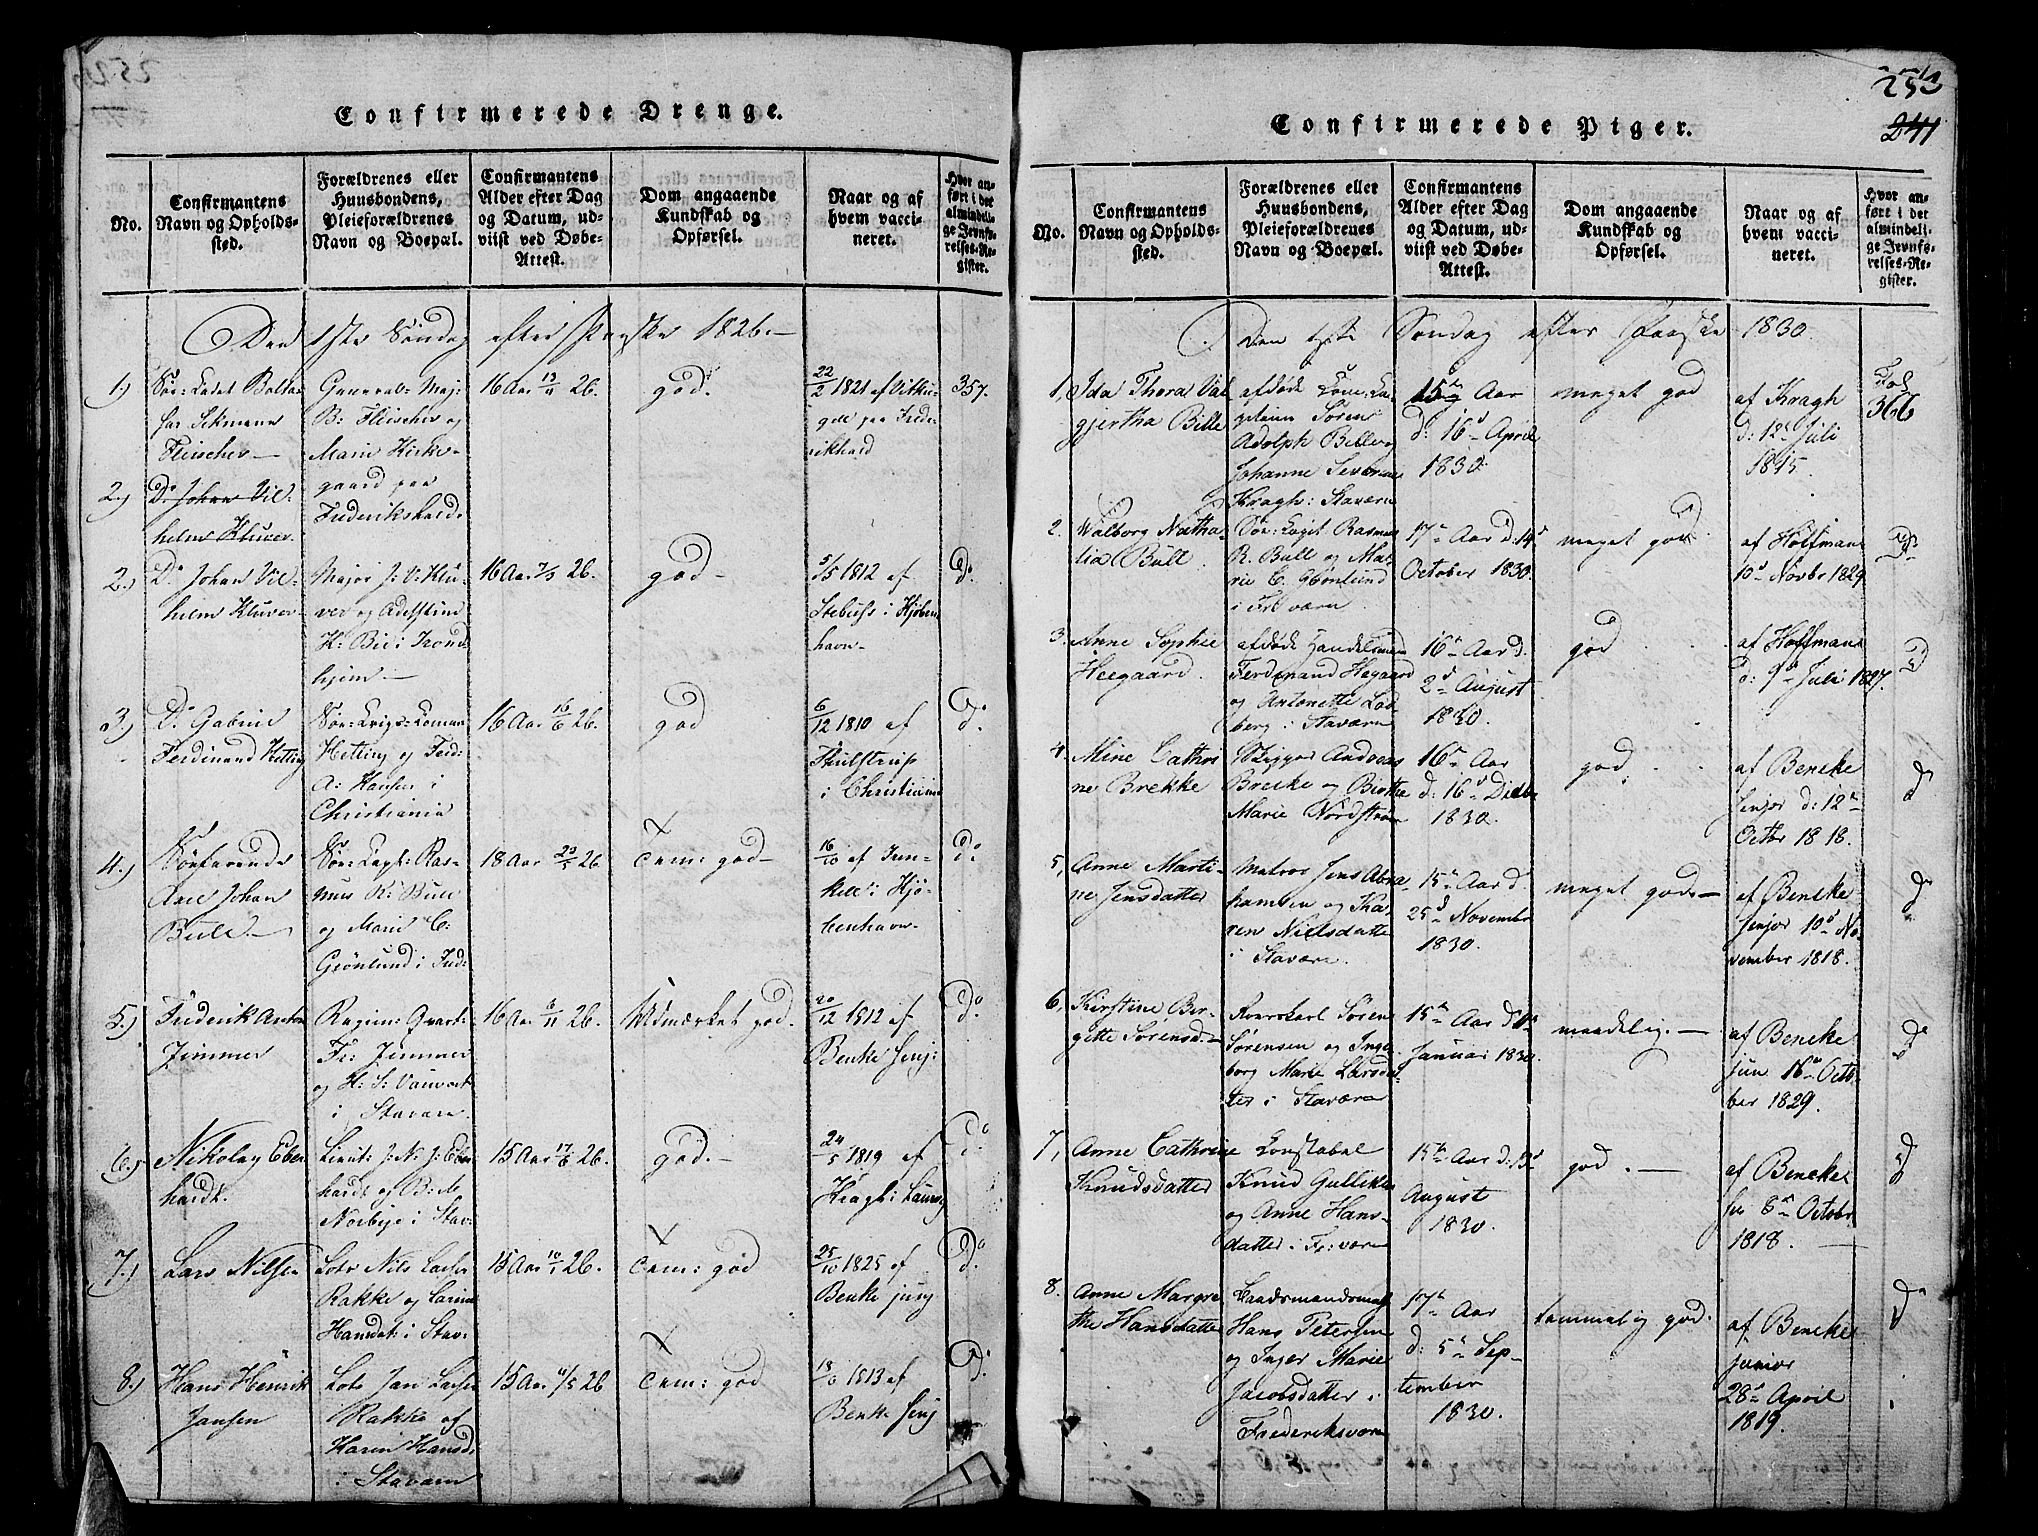 Confirmerede Drenge.
No.
Confirmantens
Navn og Opholds-
sted.
Forældrenes eller
Huusbondens,
Pleieforældrenes
Navn og Boepæl.
Confirmantens
Alder efter Dag
og Datum, ud-
viist ved Døbe-
Attest.
Dom angaaende
Kundskab og
Opførsel.
Naar og af
hvem vacci-
neret.
Hvor an-
ført i det
almindeli-
ge Jevnfø-
relses-Re-
gister.
Den 1ste Søndag efter Paaske 1826.
1.)
Fleischer
General-Maj:
B: Fleischer og
Marie Kirke-
gaard paa
Frederikshald.
16 Aar 26.
god.
22/2 1821 af
357.
2.)
Do Johan Vil-
helm Klüver
2.)
Do Johan Vil-
helm Klüver
Major J: V: Klü-
ver og
K: Bie i Trond-
hjem.
16 Aar 7/3 26.
god
5/5 1812 af
i Kjøben
havn
Do
3.)
Do Gabriel
Ferdinand Hetting
Hetting og Fred:
A: Hansen i
Christiania
16 Aar 16/6 26.
god
6/12 1810 af
i Christiania
Do
4.)
Søfarende
Johan
Bull
Sør: Capt: Ras-
mus R: Bull
og Marie C:
Grönlund i Frid:
18 Aar 20/5 26
Tem: god
16/10 af
i Kjö-
benhavn
Do
5.)
Friderik Anton
Zimmer
Fr: Zimmer
i Stavern.
16 Aar 6/11 26.
Udmærket god.
20/12 1812 af
Benke Senj:
Do
6.)
Nikolay Eber
hardt.
Lieut: J: N: J: Eber
hardt og B: M
Norbye i Stav:
15 Aar 17/6 26.
god.
24/5 1819 af
Kragh i Laurv
Do
7.)
Lars Nilsen
Lots Nils Larsen
Rakke og Karine
Hansdat: i Stav:
15 Aar 10/1 26.
Tem: god
25/10 1825 af
Benke junj
Do
8.)
Hans Henrik
Jansen
Lots Jan Larsen
Rakke og
Karen Hansd:
i Stavern
15 Aar 11/5 26
Tem: god
1813 af
Benke Senj
Do
Confirmerede Piger.
253
241
No.
Confirmantens
Navn og Opholds-
sted.
Forældrenes eller
Huusbondens,
Pleieforældrenes
Navn og Boepæl.
Confirmantens
Alder efter Dag
og Datum, ud-
viist ved Døbe-
Attest.
Dom angaaende
Kundskab og
Opførsel.
Naar og af
hvem vacci-
neret.
Hvor an-
ført i det
almindeli-
ge Jevnfø-
relses-Re-
gister.
Den 1ste Søndag efter Paaske 1830.
1,
Ida Thora Val
gjertha Bille
afdøde
Søren
Adolph Bille og
Johanne Severine
Kragh: Stavern
15 Aar
d: 16d April
1830.
meget god
af Kragh
d: 12te Juli
1815
Fol
366
2.
Walborg Natha-
lia Bull
Sør: Capit Rasmus
R. Bull og Ma-
rie C. Grönlund
i Fr: værn
17n Aar d: 14d
October 1830.
meget god
af Hoffman
10d Novbr 1829
Do
3.
Anne Sophie
Heegaard.
afdøde Handelsmand
Ferdinand Hegaard
og Antonette Lad-
berg i Stavern
16n Aar d.
2d August
1830.
god
af Hoffman
d: 9d Juli 1827.
D
4
Mine Cathri
ne Brekke
Skipper Andreas
Brecke og Birthe
Marie Nordström
16n Aar
d: 16d Decbr
1830.
god.
af Bencke
senjor d: 12te
Octbr 1818.
do
5,
Anne Marti-
ne Jensdatter
Matros Jens Abra-
hamsen og Ka-
ren Nielsdatter
i Stavern.
15n Aar d.
25d November
1830.
meget god.
af Bencke
senjor 10d No-
vember 1818.
do
6,
Kirstine Bir-
gitte Sørensd.
Sören
Sørensen og Inge-
borg Marie Larsdat-
ter i Stavern
15n Aar d
Januar 1830.
maadelig.
af Bencke
jun 16d Octo-
ber 1829.
do
7,
Anne Cathrine
Knudsdatter
Constabel
Knud Gulliksen
og Anne Hans-
datter i Fr: værn
15n Aar d: 13d
August
1830.
god.
af Bencke
sen 6n Octobr
1818.
d
8.
Anne Margre
the Hansdatter
Baadsmandsmat
Hans Petersen
og Inger Marie
Jacobsdatter i
Frederiksværn
17n Aar
d: 5n Sep-
tember
1830.
temmelig god.
af Bencke
junior
28d April
1819.
do